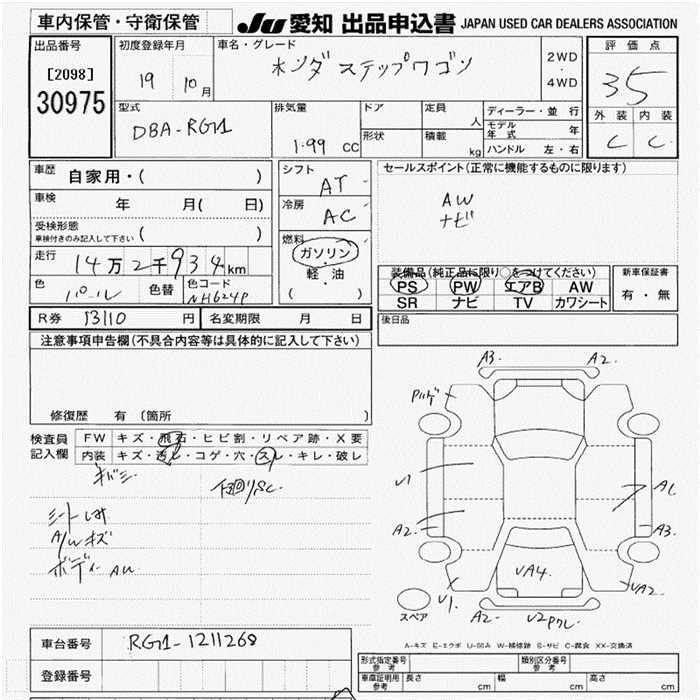 車内保管・守衛保管 JU 愛知 出品申込書 JAPAN USED CAR DEALERS ASSOCIATION
出品番号 初度登録年月 車名・グレード 評価点
[2098] 19 10月 ホンダ ステップワゴン 2WD 35
30975 4WD
外装 内装
型式 排気量 ドア 定員 人 ディーラー・並行 C C
DBA-RG1 1.99 cc モデル年式 年
形状 積載 kg ハンドル 左・右
車歴 自家用・( ) シフト AT セールスポイント(正常に機能するものに限ります)
車検 年 月( 日) 冷房 AC AW
受検形態 ナビ
車検付きのみ記入して下さい ( ) 燃料
走行 14万2千934km ガソリン 装備品(純正品に限り○をつけてください) 新車保証書
色 パール 色替 色コード NH624P 軽・油 PS PW エアB AW 有・無
( ) SR ナビ TV カワシート
R券 13110 円 名変期限 月 日 後日品
注意事項申告欄(不具合内容等は具体的に記入して下さい)
修復歴 有(箇所
検査員 FW キズ・飛石・ヒビ割・リペア跡・X要
記入欄 内装 キズ・汚レ・コゲ・穴・スレ・キレ・破レ
A3. A2.
U1
A2. A1
A3.
A/Wキズ
ボディー AU
UA4.
U1. UA2.
スペア A2. U2
A-キズ E-エクボ U-凹み W-補修跡 S-サビ C-腐食 XX-交換済
車台番号 RG1-1211268 形式指定番号 参考 類別区分番号 参考
登録番号 車庫証明用 参考 長さ cm 幅 cm 高さ cm